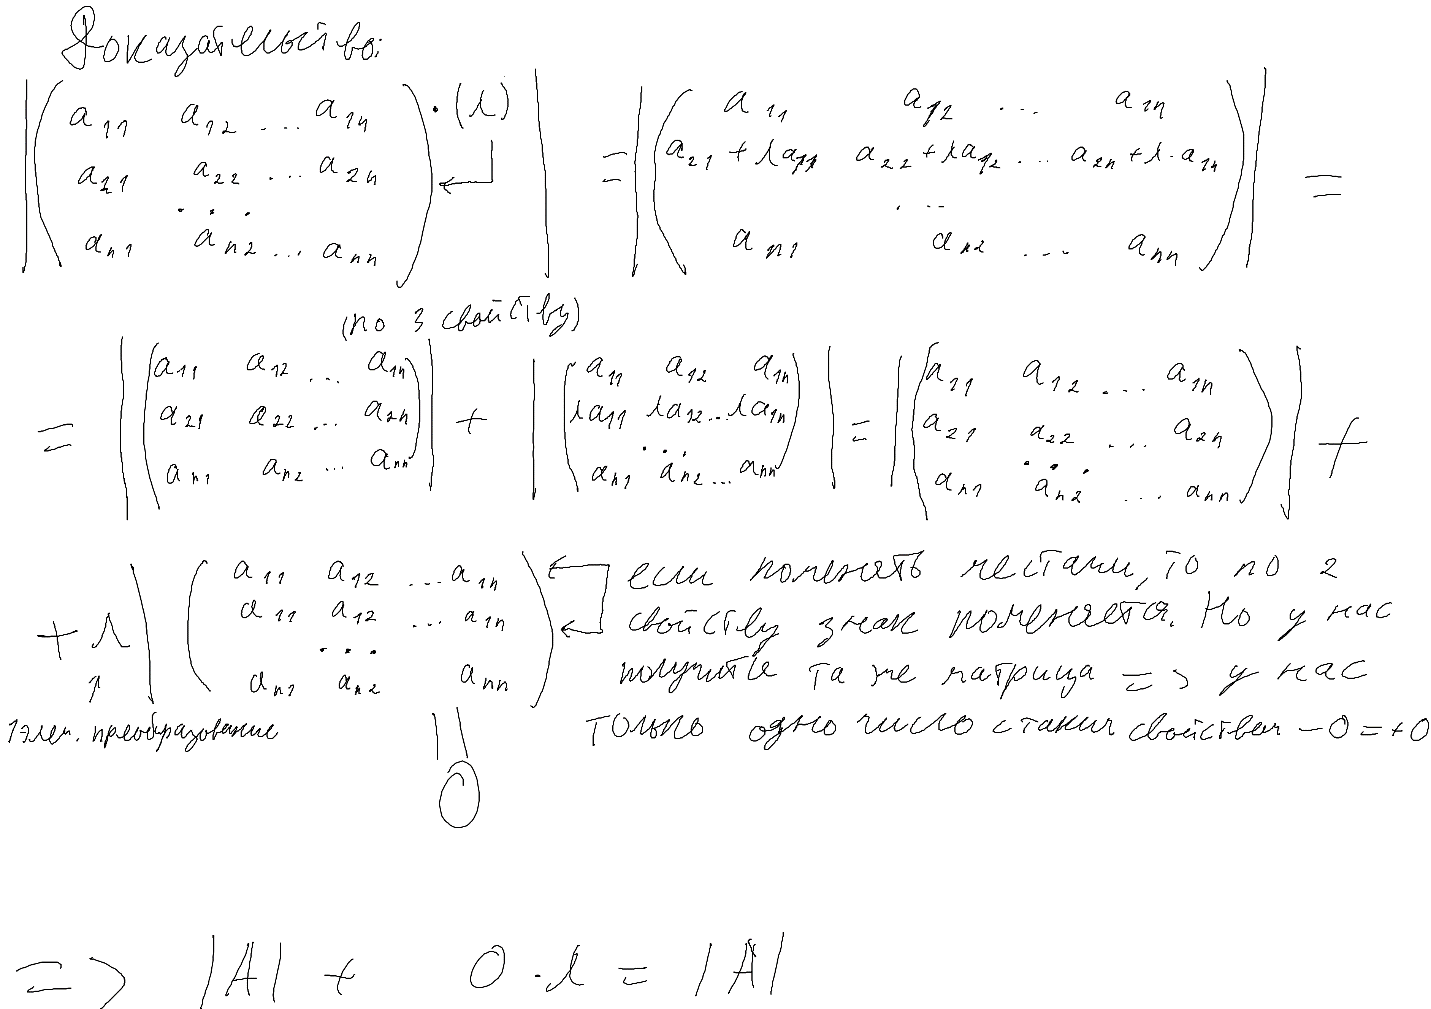 Доказательство:
|( a₁₁ a₁₂ ... a₁ₙ ) · (λ) | = |( a₁₁ a₁₂ ... a₁ₙ )| =
a₂₁ a₂₂ ... a₂ₙ a₂₁ + λa₁₁ a₂₂ + λa₁₂ ... a₂ₙ + λ·a₁ₙ
... ...
aₙ₁ aₙ₂ ... aₙₙ aₙ₁ aₙ₂ ... aₙₙ
(по 3 свойству)
= |( a₁₁ a₁₂ ... a₁ₙ )| + |( a₁₁ a₁₂ a₁ₙ )| = |( a₁₁ a₁₂ ... a₁ₙ )| +
a₂₁ a₂₂ ... a₂ₙ λa₁₁ λa₁₂ ... λa₁ₙ a₂₁ a₂₂ ... a₂ₙ
... ...
aₙ₁ aₙ₂ ... aₙₙ aₙ₁ aₙ₂ ... aₙₙ aₙ₁ aₙ₂ ... aₙₙ
+ λ |( a₁₁ a₁₂ ... a₁ₙ )
a₁₁ a₁₂ ... a₁ₙ
...
aₙ₁ aₙ₂ aₙₙ
↑
1 элем. преобразование
||
0
если поменять местами, то по 2
свойству знак поменяется. Но у нас
получится та же матрица => у нас
только одно число с таким свойством −0=+0
=> |A| + 0·λ = |A|